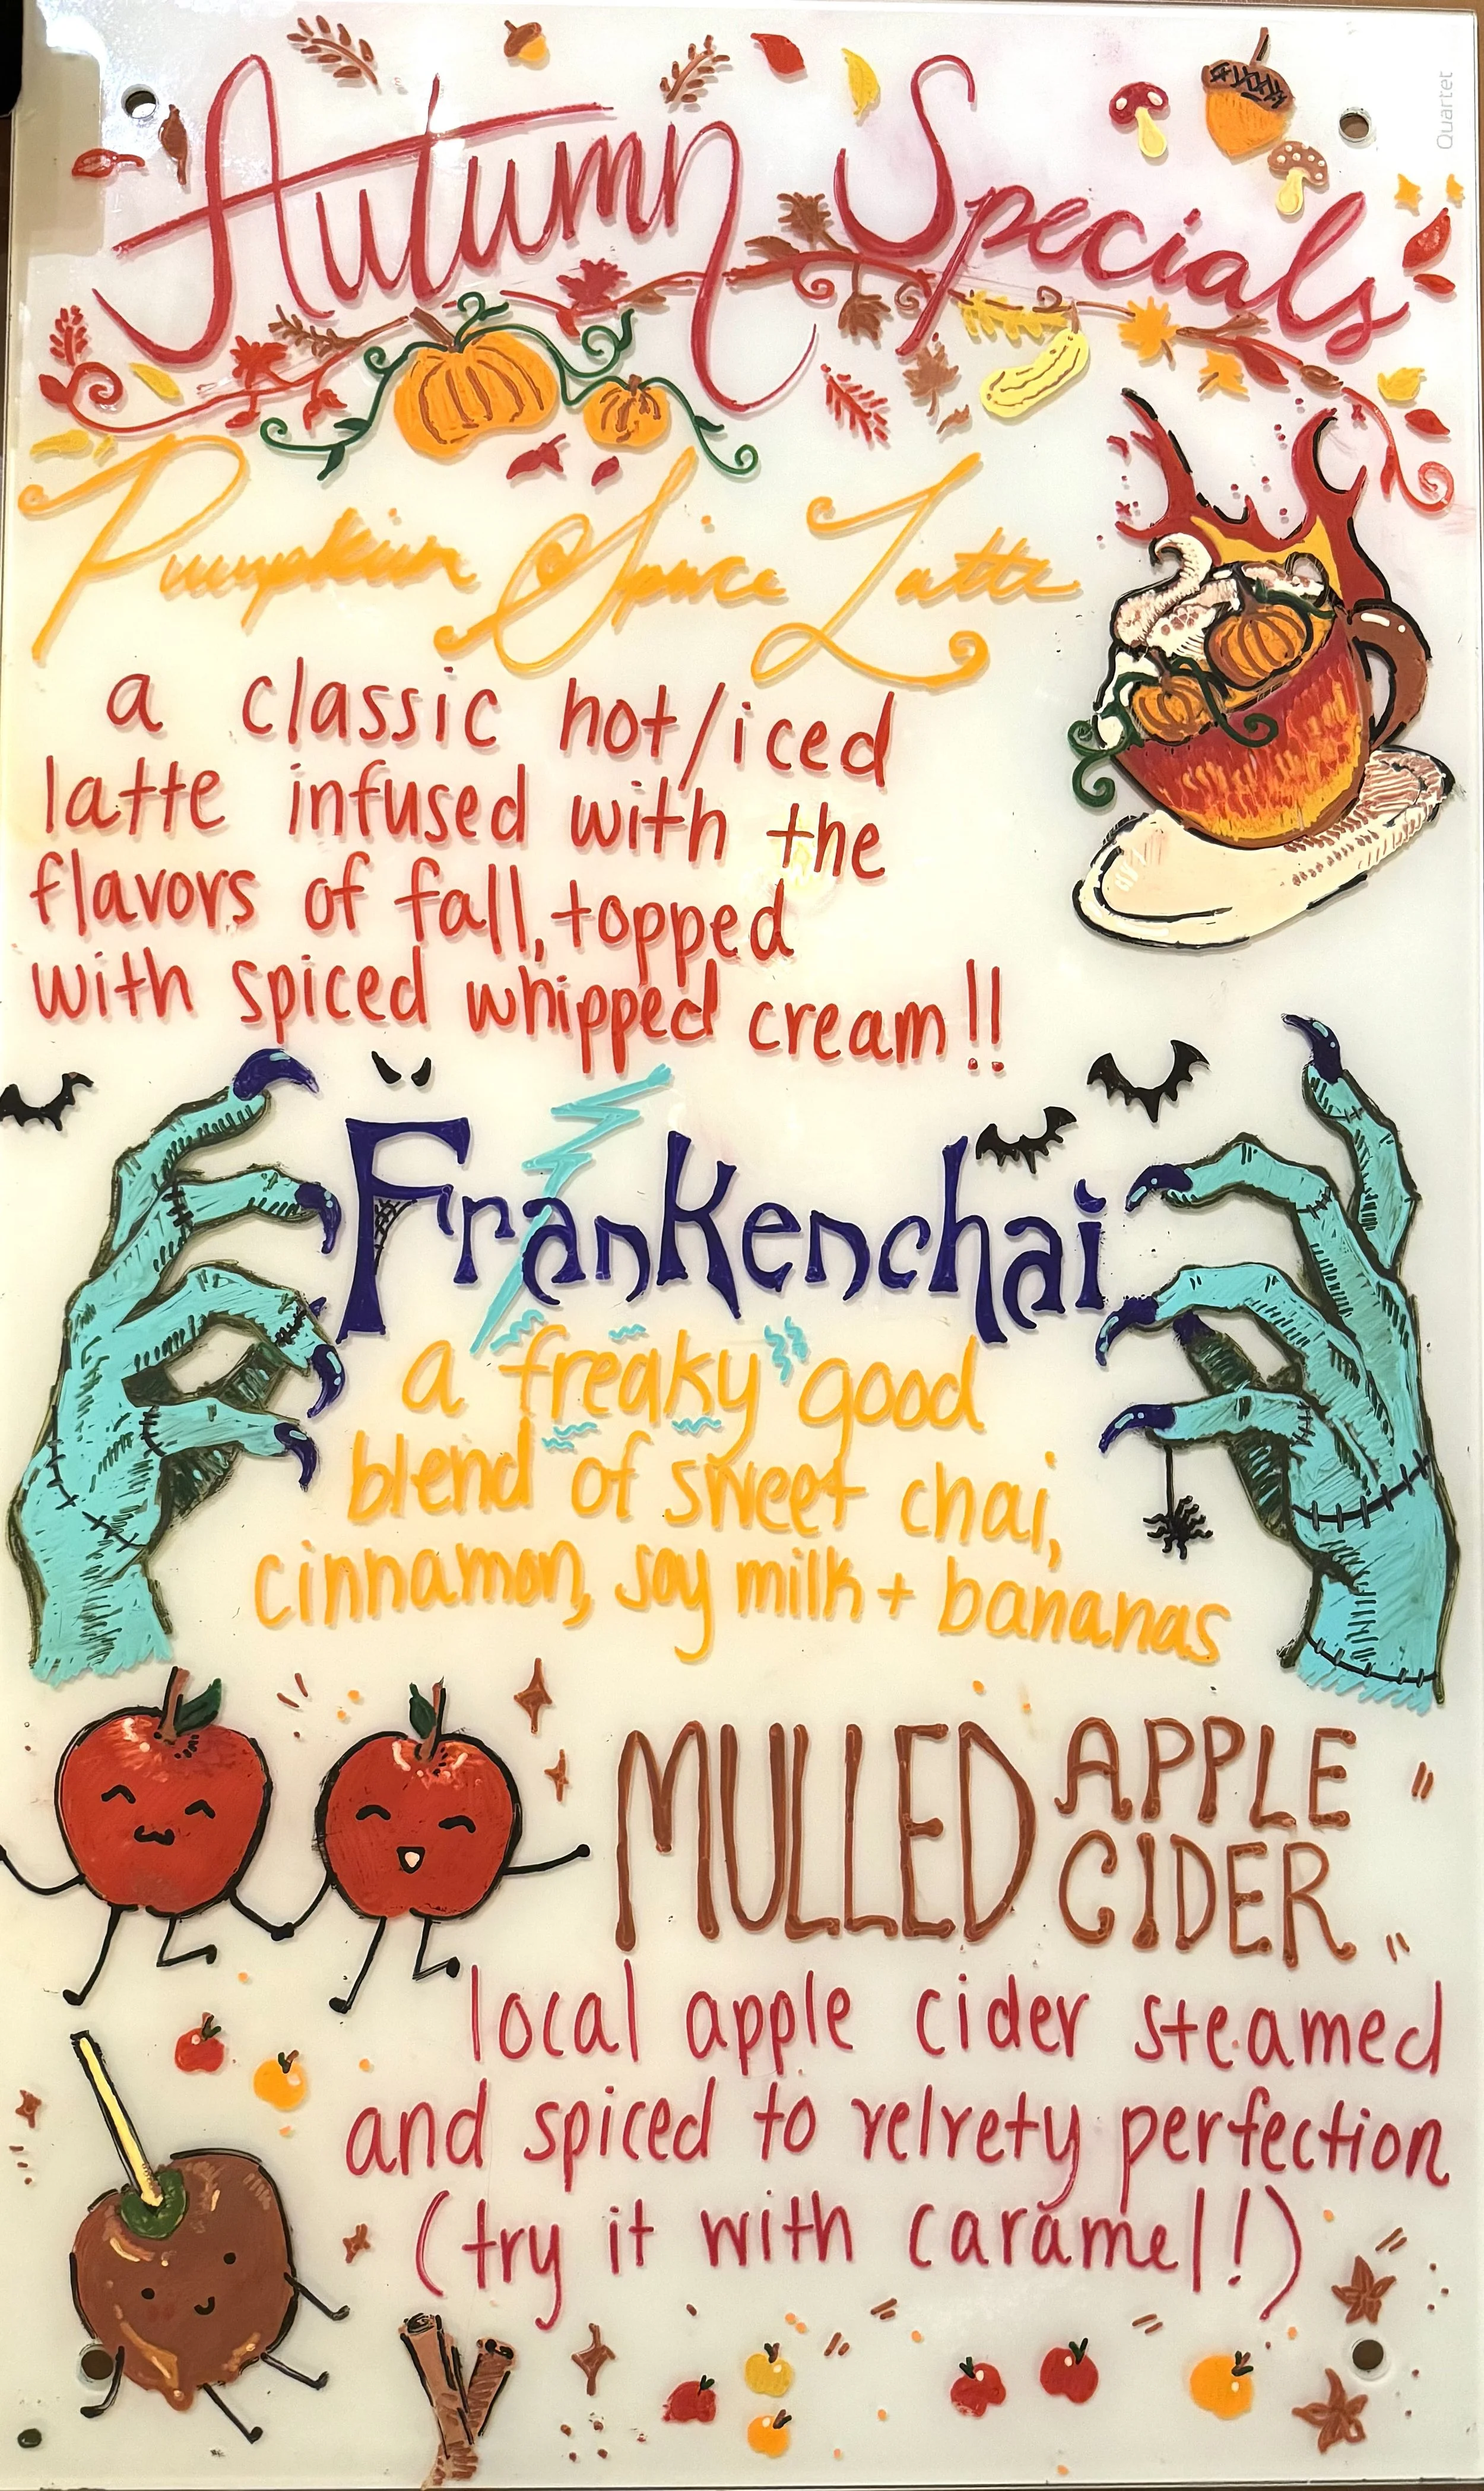 Quartet
Autumn Specials
Pumpkin Spice Latte
a classic hot/iced
latte infused with the
flavors of fall, topped
with spiced whipped cream!!
Frankenchai
a freaky good
blend of sweet chai,
cinnamon, soy milk + bananas
MULLED APPLE
CIDER
local apple cider steamed
and spiced to velvety perfection
(try it with caramel!)